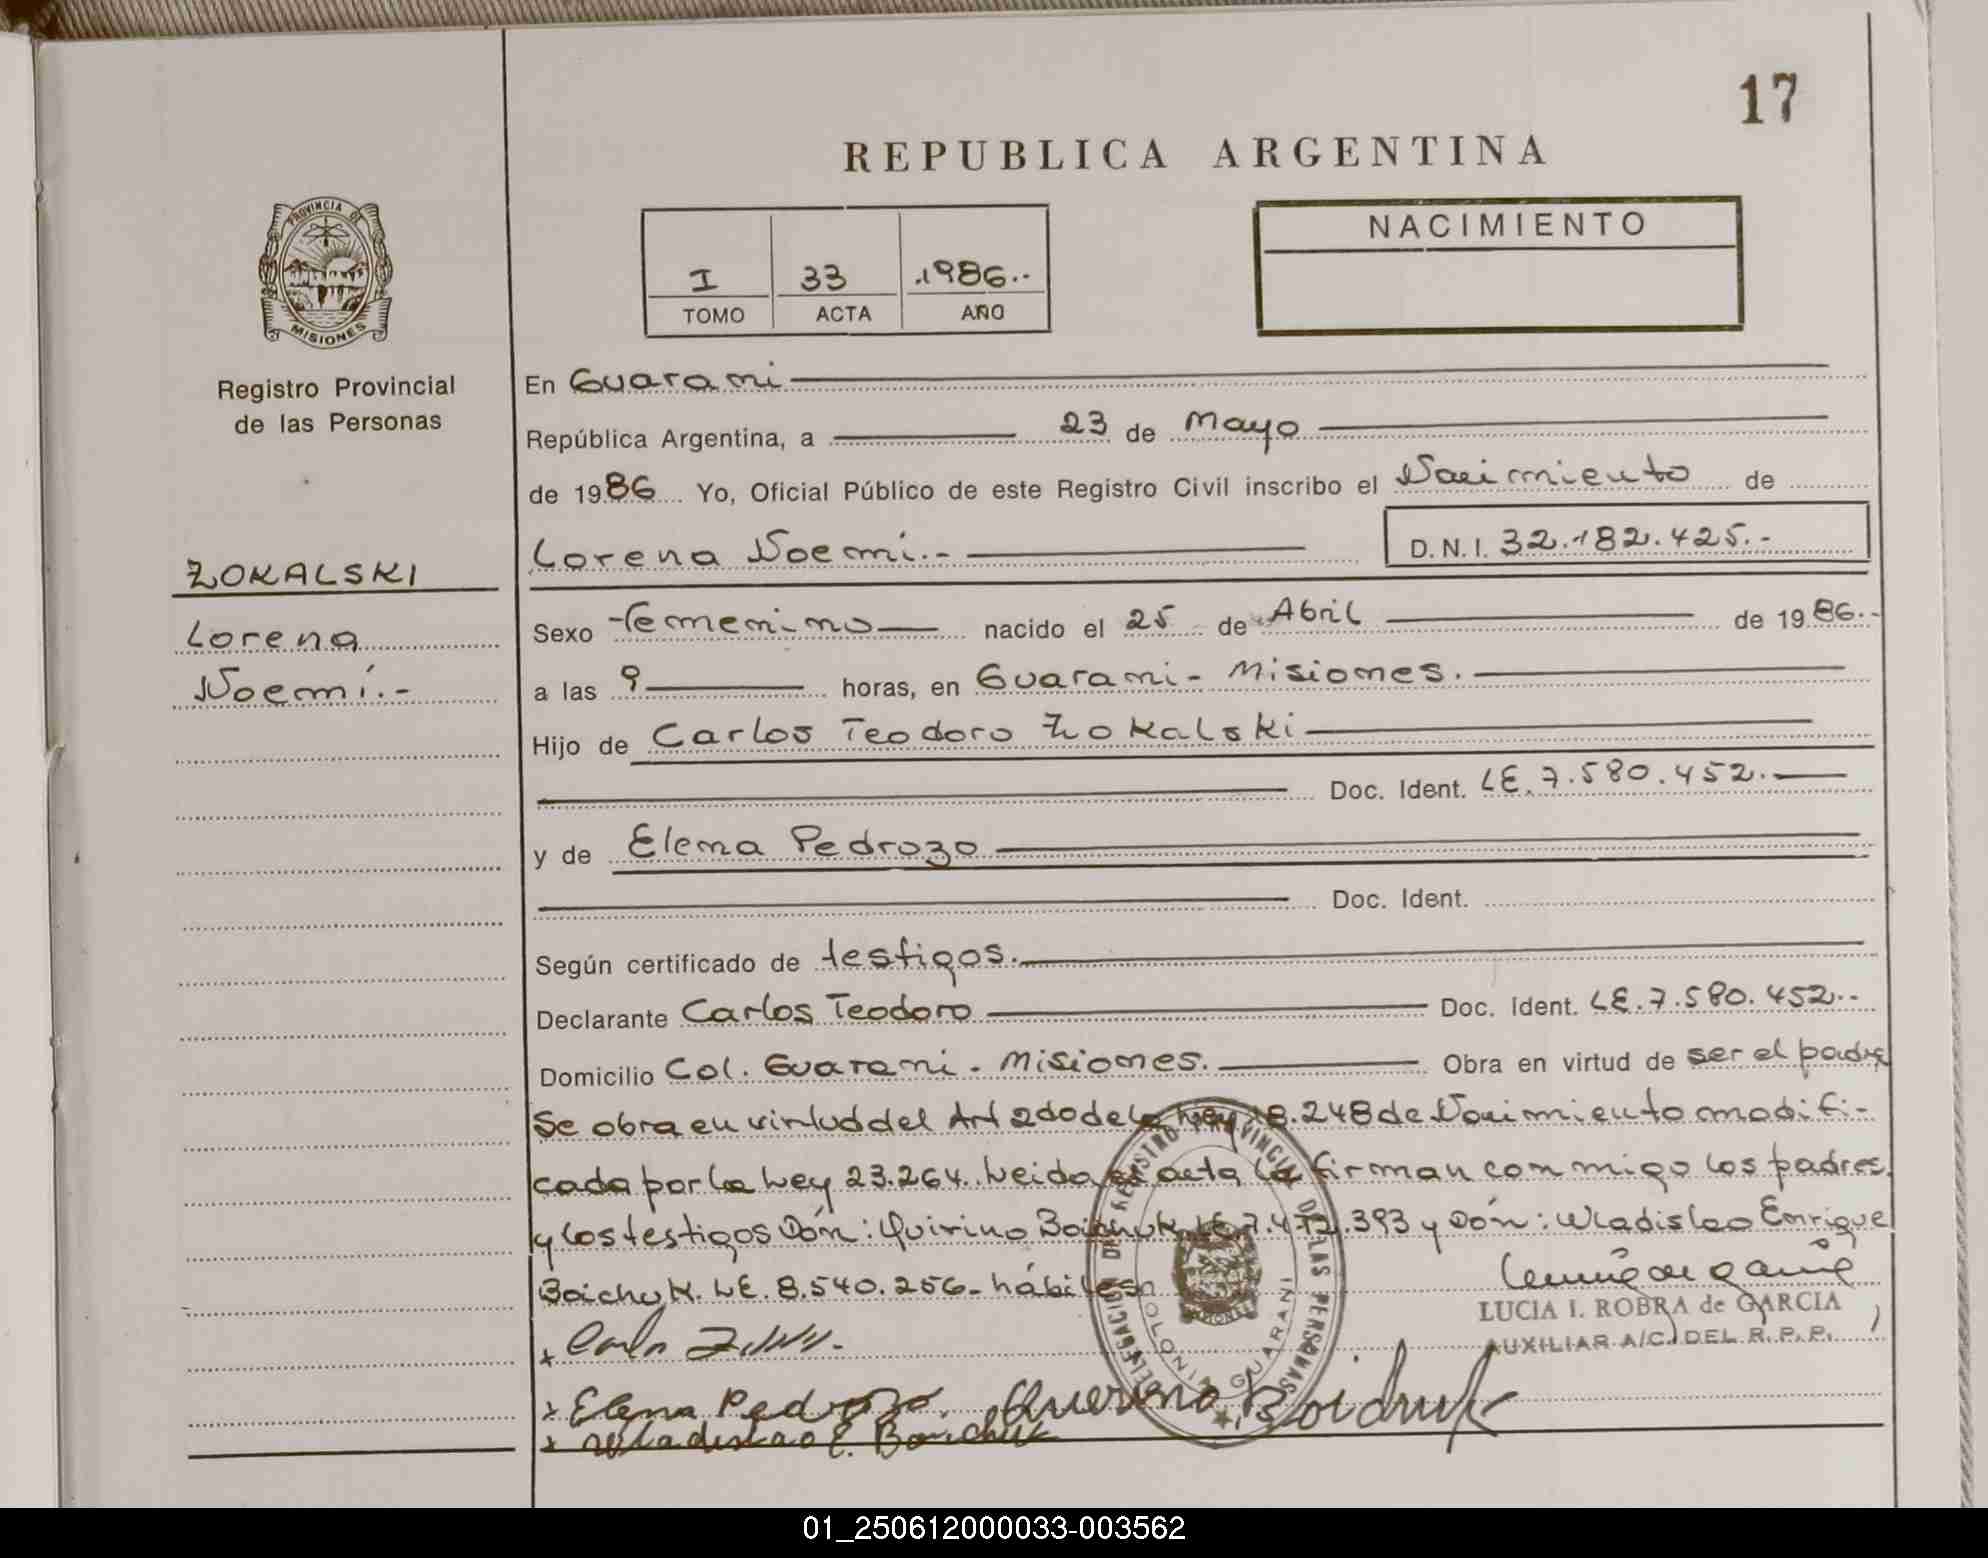 17
REPUBLICA ARGENTINA
PROVINCIA DE
MISIONES
Registro Provincial
de las Personas
ZOKALSKI
Lorena
Noemí.-
I 33 1986.-
TOMO ACTA AÑO
NACIMIENTO
En Guarani
República Argentina, a 23 de Mayo
de 1986 Yo, Oficial Público de este Registro Civil inscribo el Nacimiento de
Lorena Noemí.- D.N.I. 32.182.425.-
Sexo femenino nacido el 25 de Abril de 1986.-
a las 9 horas, en Guarani - Misiones.
Hijo de Carlos Teodoro Zokalski
Doc. Ident. LE. 7.580.452.
y de Elena Pedrozo
Doc. Ident.
Según certificado de testigos.
Declarante Carlos Teodoro Doc. Ident. LE. 7.580.452.-
Domicilio Col. Guarani - Misiones. Obra en virtud de ser el padre
Se obra en virtud del Art 2do de la Ley 18.248 de Nacimiento modifi-
cada por la Ley 23.264. Leida el acta la firman conmigo los padres
y los testigos Dón: Quirino Boichuk LE 7.472.393 y Dón: Wladislao Enrique
Boichuk. LE. 8.540.256- hábiles
LUCIA I. ROBRA de GARCIA
AUXILIAR A/C. DEL R. P. P.
DELEGACION DEL REGISTRO PROVINCIAL DE LAS PERSONAS
COLONIA GUARANI
x Elena Pedrozo. Querino Boichuk
x Wladislao E. Boichuk
01_250612000033-003562